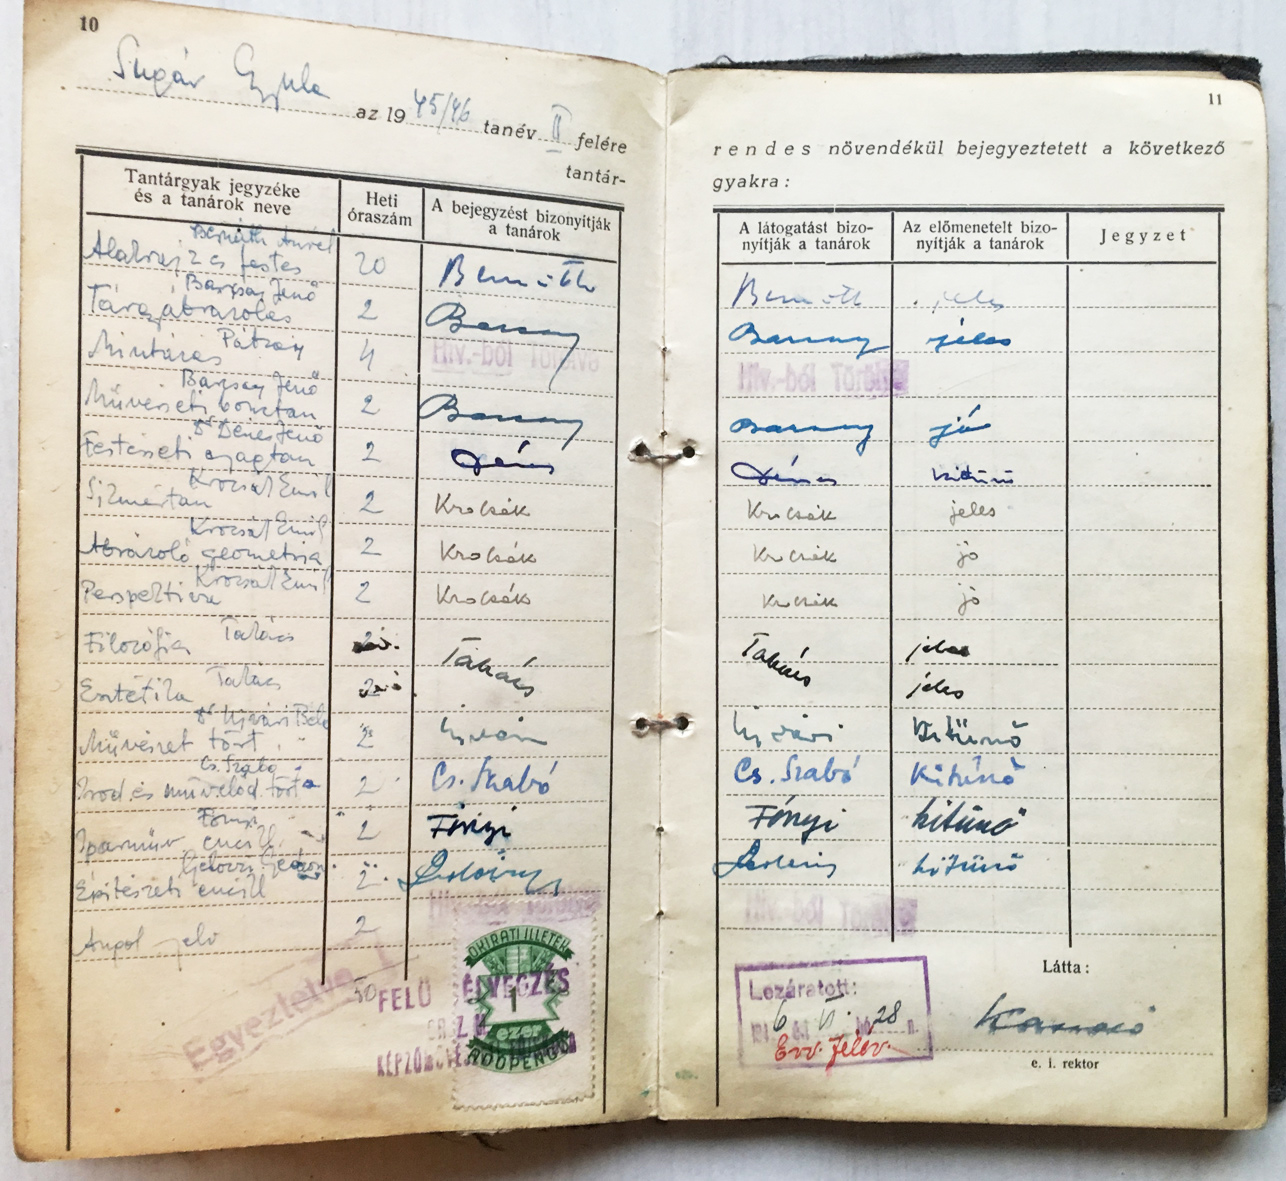 10
Sugár Gyula
az 1945/46 tanév II felére
tantár-
Tantárgyak jegyzéke
és a tanárok neve
Heti
óraszám
A bejegyzést bizonyítják
a tanárok
Bernáth Aurél
Alakrajz és festés 20 Bernáth
Barcsay Jenő
Tárgyábrázolás 2 Barcsay
Pátzay
Mintázás 4 Hiv.-ból Törölve
Barcsay Jenő
Művészeti bonctan 2 Barcsay
Dr Dénes Jenő
Festészeti anyagtan 2 Dénes
Krocsák Emil
Szinmértan 2 Krocsák
Krocsák Emil
Ábrázoló geometria 2 Krocsák
Krocsák Emil
Perspektiva 2 Krocsák
Filozófia Takács 2 Takács
Esztétika Takács 2
Dr Ujvári Béla
Művészet tört. 2 Ujvári
Cs. Szabó
Irod. és művelőd. tört. 2 Cs. Szabó
Fónyi
Iparműv encikl. 2 Fónyi
Építészeti encikl. 2
Hiv.-ból Törölve
Angol nyelv 2
50
Egyeztetve
FELÜLBÉLYEGZÉS
ORSZ. M.
KÉPZŐMŰVÉSZETI
OKIRATI ILLETÉK
1
ezer
ADÓPENGŐ
11
rendes növendékül bejegyeztetett a következő
gyakra:
A látogatást bizo-
nyítják a tanárok
Az előmenetelt bizo-
nyítják a tanárok
Jegyzet
Bernáth jeles
Barcsay jeles
Hiv.-ból Törölve
Barcsay jó
Dénes kitünő
Krocsák jeles
Krocsák jó
Krocsák jó
Takács jeles
jeles
Ujvári Kitünő
Cs. Szabó Kitünő
Fónyi kitünő
kitünő
Hiv.-ból Törölve
Lezáratott:
194 6 évi VI. hó 28 n.
Látta:
e. i. rektor